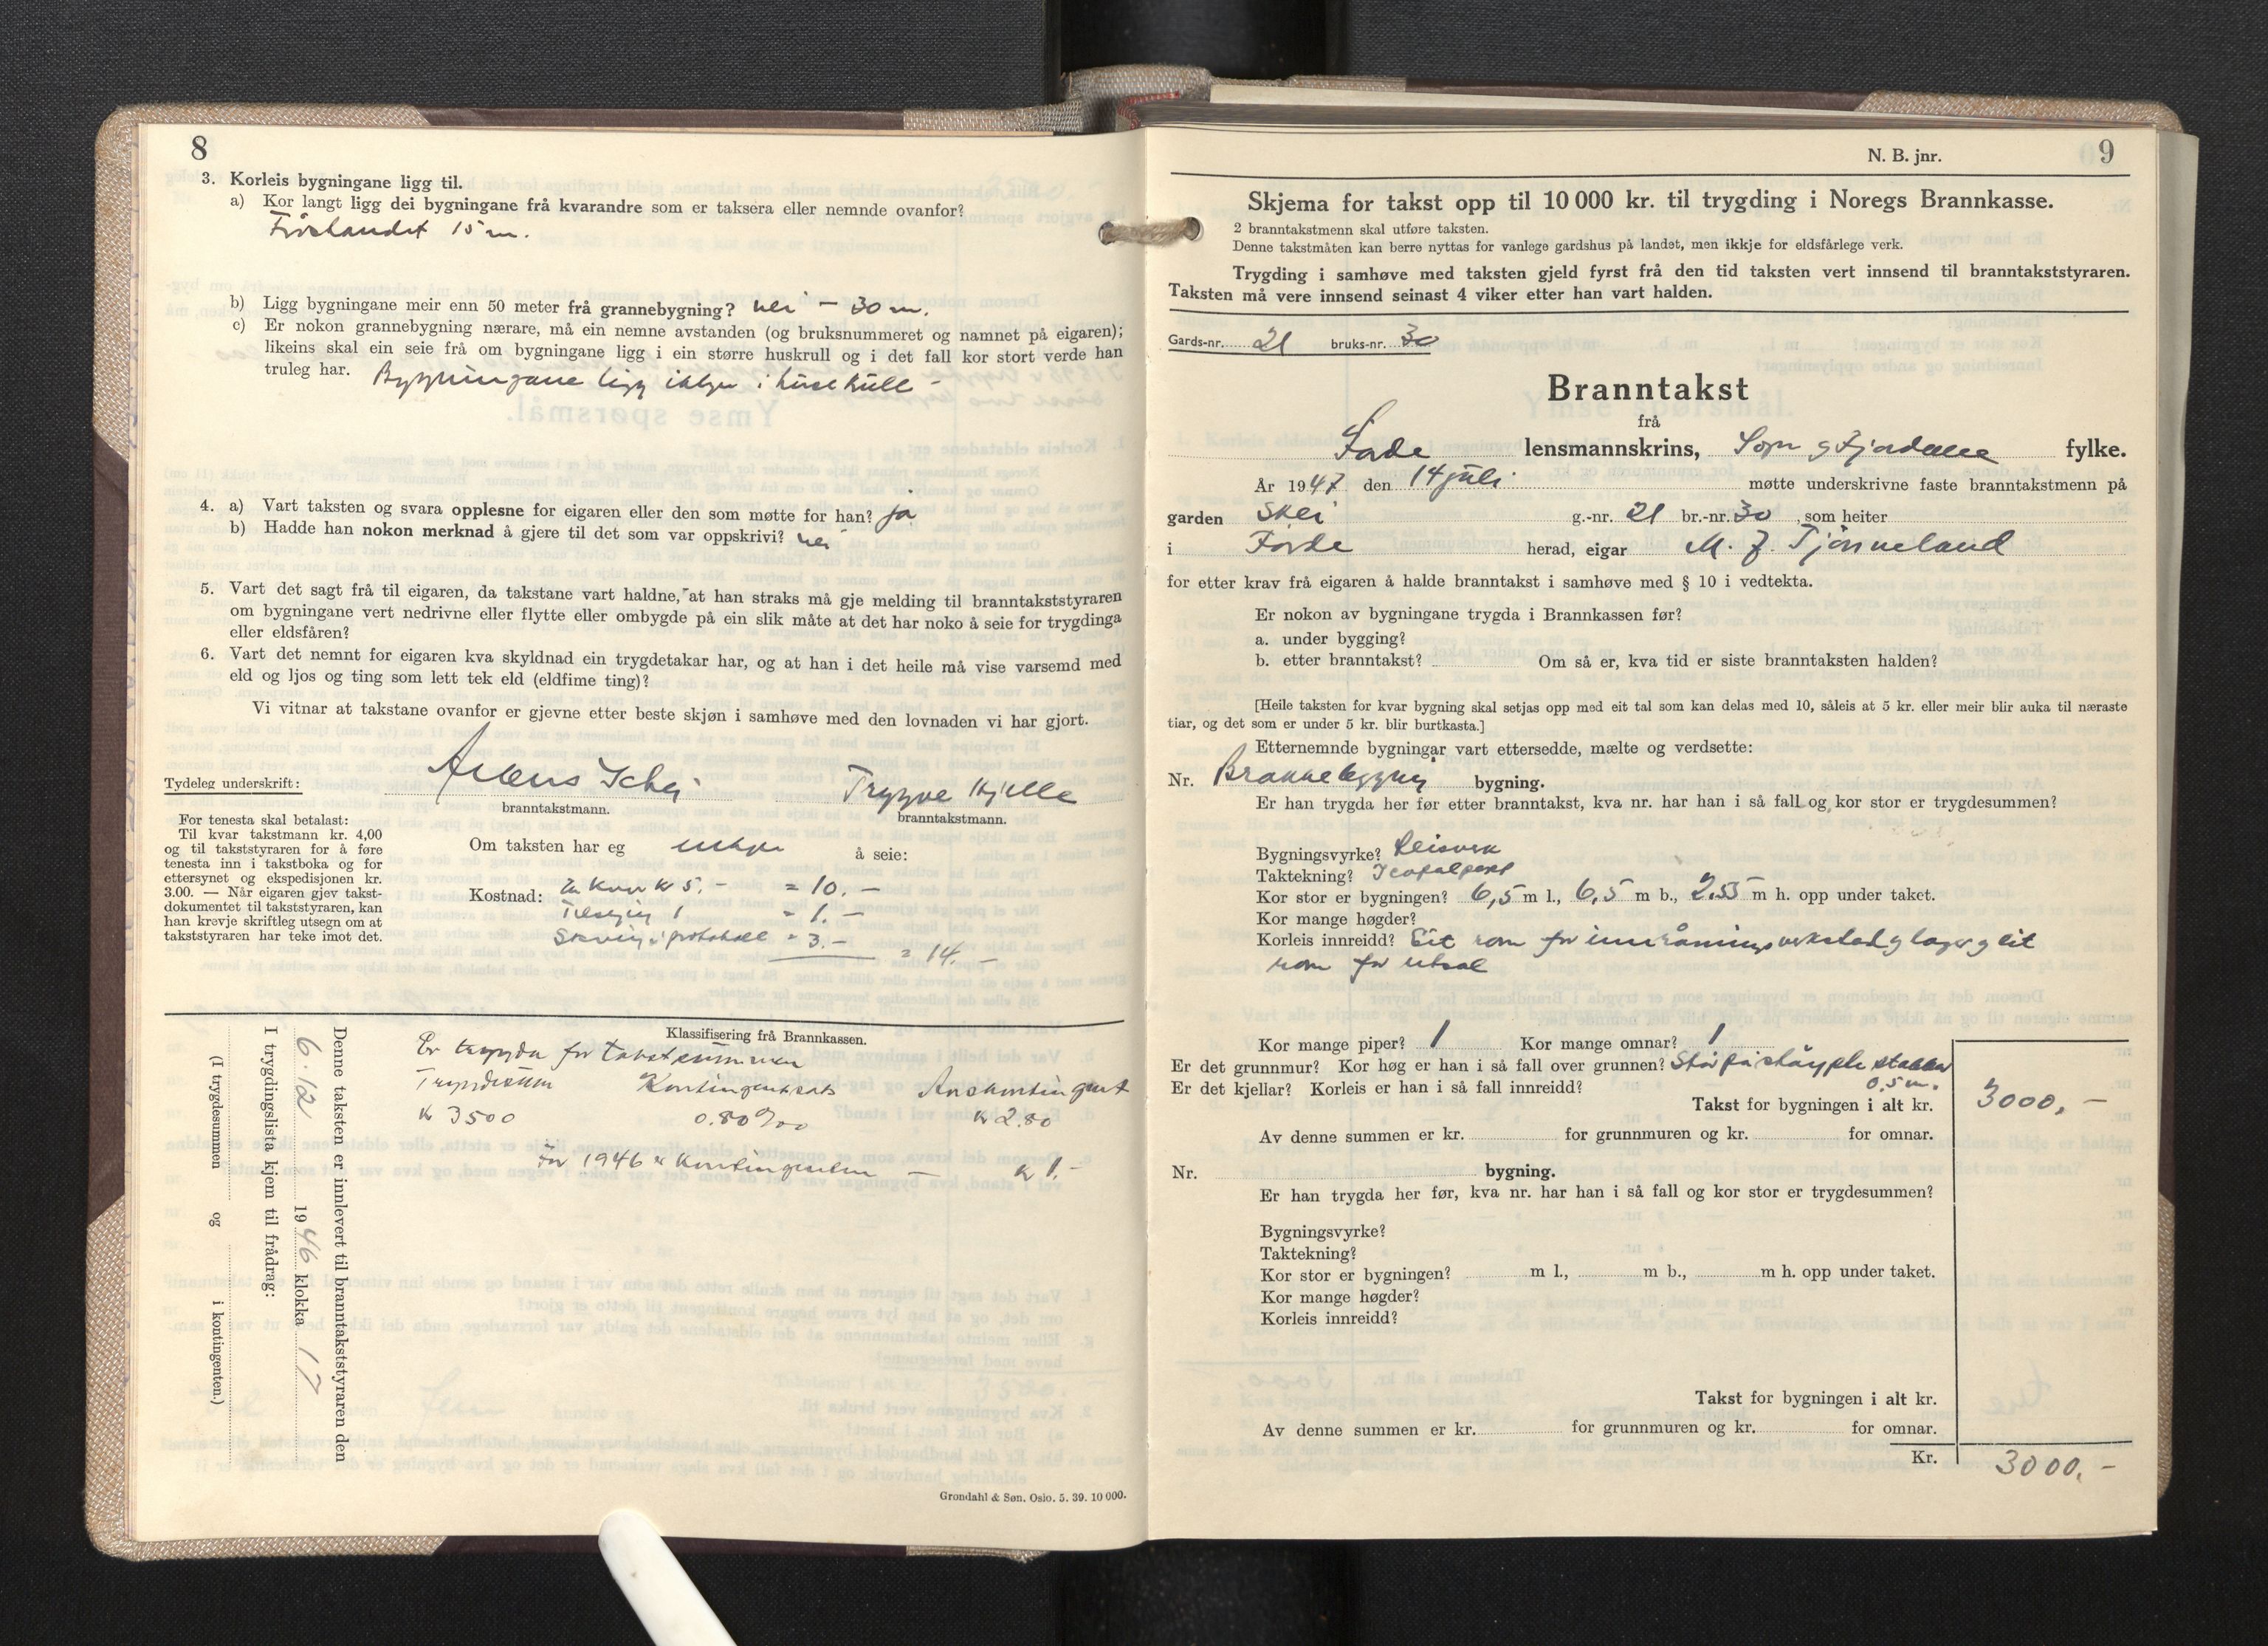 8
3. Korleis bygningane ligg til.
a) Kor langt ligg dei bygningane frå kvarandre som er taksera eller nemnde ovanfor?
15 m.
b) Ligg bygningane meir enn 50 meter frå grannebygning? nei – 30 m.
c) Er nokon grannebygning nærare, må ein nemne avstanden (og bruksnummeret og namnet på eigaren);
likeins skal ein seie frå om bygningane ligg i ein større huskrull og i det fall kor stort verde han
truleg har. Bygningane ligg ikkje i huskrull –
4. a) Vart taksten og svara opplesne for eigaren eller den som møtte for han? ja
b) Hadde han nokon merknad å gjere til det som var oppskrivi? nei
5. Vart det sagt frå til eigaren, da takstane vart haldne, at han straks må gje melding til branntakststyraren
om bygningane vert nedrivne eller flytte eller ombygde på ein slik måte at det har noko å seie for trygdinga
eller eldsfåren?
6. Vart det nemnt for eigaren kva skyldnad ein trygdetakar har, og at han i det heile må vise varsemd med
eld og ljos og ting som lett tek eld (eldfime ting)?
Vi vitnar at takstane ovanfor er gjevne etter beste skjøn i samhøve med den lovnaden vi har gjort.
Tydeleg underskrift: Schei Trygve Hjelle
branntakstmann. branntakstmann.
For tenesta skal betalast:
Til kvar takstmann kr. 4,00
og til takststyraren for å føre
tenesta inn i takstboka og for
ettersynet og ekspedisjonen kr.
3.00. — Når eigaren gjev takst-
dokumentet til takststyraren, kan
han krevje skriftleg utsegn om at
takststyraren har teke imot det.
Om taksten har eg inkje å seie:
Kostnad: kr 5.– = 10.–
= 1.–
Skriving i protokoll = 3.–
= 14.–
Klassifisering frå Brannkassen.
Er trygda for takstsummen
Trygdesum Kontingentsats Årskontingent
kr 3500 0.80 ‰ kr 2.80
For 1946 er kontingenten – kr 1.–
Denne taksten er innlevert til branntakststyraren den
6.12 1946 klokka 17
I trygdingslista kjem til frådrag:
(I trygdesummen og i kontingenten.)
Grøndahl & Søn, Oslo. 5. 39. 10 000.
N. B. jnr. 9
Skjema for takst opp til 10 000 kr. til trygding i Noregs Brannkasse.
2 branntakstmenn skal utføre taksten.
Denne takstmåten kan berre nyttas for vanlege gardshus på landet, men ikkje for eldsfårlege verk.
Trygding i samhøve med taksten gjeld fyrst frå den tid taksten vert innsend til branntakststyraren.
Taksten må vere innsend seinast 4 viker etter han vart halden.
Gards-nr. 21 bruks-nr. 30
Branntakst
frå
Førde lensmannskrins, Sogn og Fjordane fylke.
År 1947 den 14 juli møtte underskrivne faste branntakstmenn på
garden Skei g.-nr. 21 br.-nr. 30, som heiter
i Førde herad, eigar M. J. Tjønneland
for etter krav frå eigaren å halde branntakst i samhøve med § 10 i vedtekta.
Er nokon av bygningane trygda i Brannkassen før?
a. under bygging?
b. etter branntakst? Om så er, kva tid er siste branntaksten halden?
[Heile taksten for kvar bygning skal setjas opp med eit tal som kan delas med 10, såleis at 5 kr. eller meir blir auka til næraste
tiar, og det som er under 5 kr. blir burtkasta.]
Etternemnde bygningar vart ettersedde, mælte og verdsette:
Nr. Brakkebygning bygning.
Er han trygda her før etter branntakst, kva nr. har han i så fall og kor stor er trygdesummen?
Bygningsvyrke? Reisverk
Taktekning?
Kor stor er bygningen? 6,5 m l., 6,5 m b., 2.55 m h. opp under taket.
Kor mange høgder?
Korleis innreidd? Eit rom for innråmingsverkstad og lager og eit
rom for utsal
Kor mange piper? 1 Kor mange omnar? 1
Er det grunnmur? Kor høg er han i så fall over grunnen? Står på støypte stabbar
0,5 m.
Er det kjellar? Korleis er han i så fall innreidd?
Takst for bygningen i alt kr. 3000,–
Av denne summen er kr. for grunnmuren og kr. for omnar.
Nr. bygning.
Er han trygda her før, kva nr. har han i så fall og kor stor er trygdesummen?
Bygningsvyrke?
Taktekning?
Kor stor er bygningen? m l., m b., m h. opp under taket.
Kor mange høgder?
Korleis innreidd?
Takst for bygningen i alt kr.
Av denne summen er kr. for grunnmuren og kr. for omnar.
Kr. 3000,–